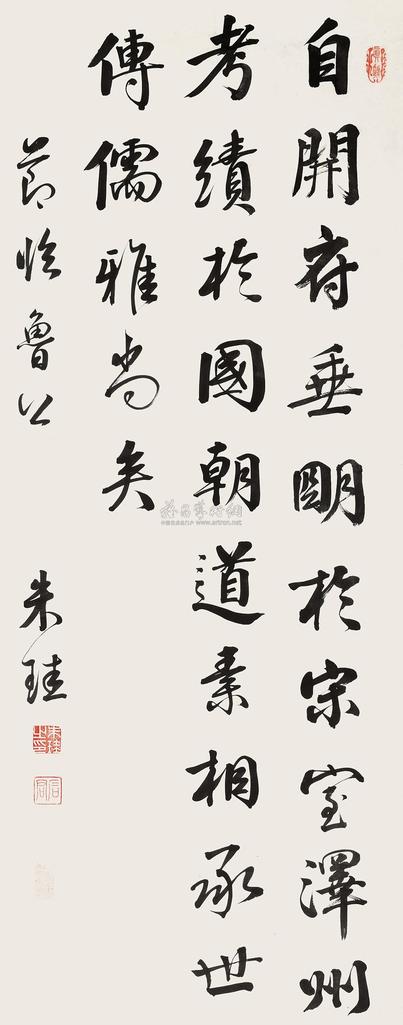 自開府垂明於宋室澤州
考績於國朝道素相承世
傳儒雅尚矣
節臨魯公
朱珪
www.artron.net